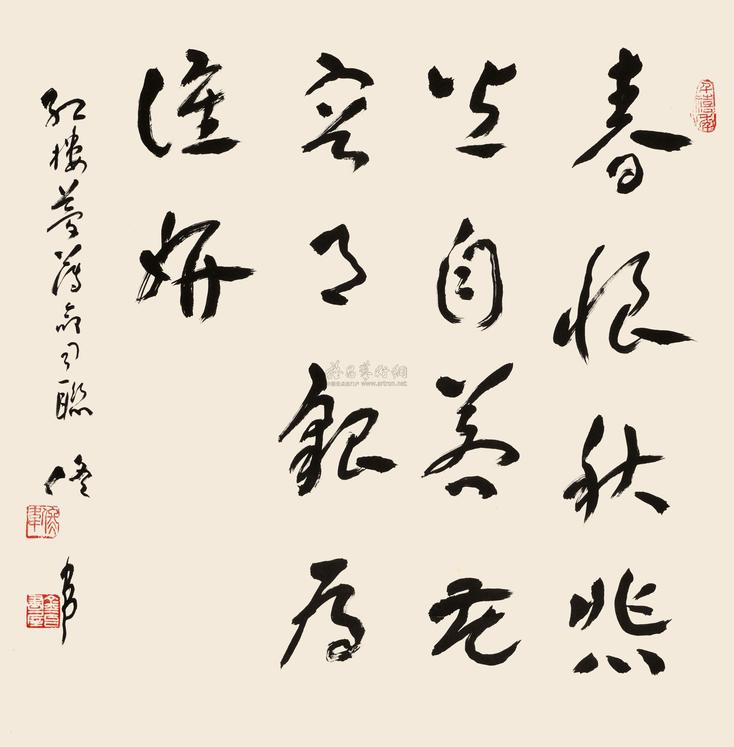 春恨秋悲
皆自惹花
容月貌為
誰妍
紅樓夢薄命司聯 佟韋
雅昌藝術網
www.artron.net